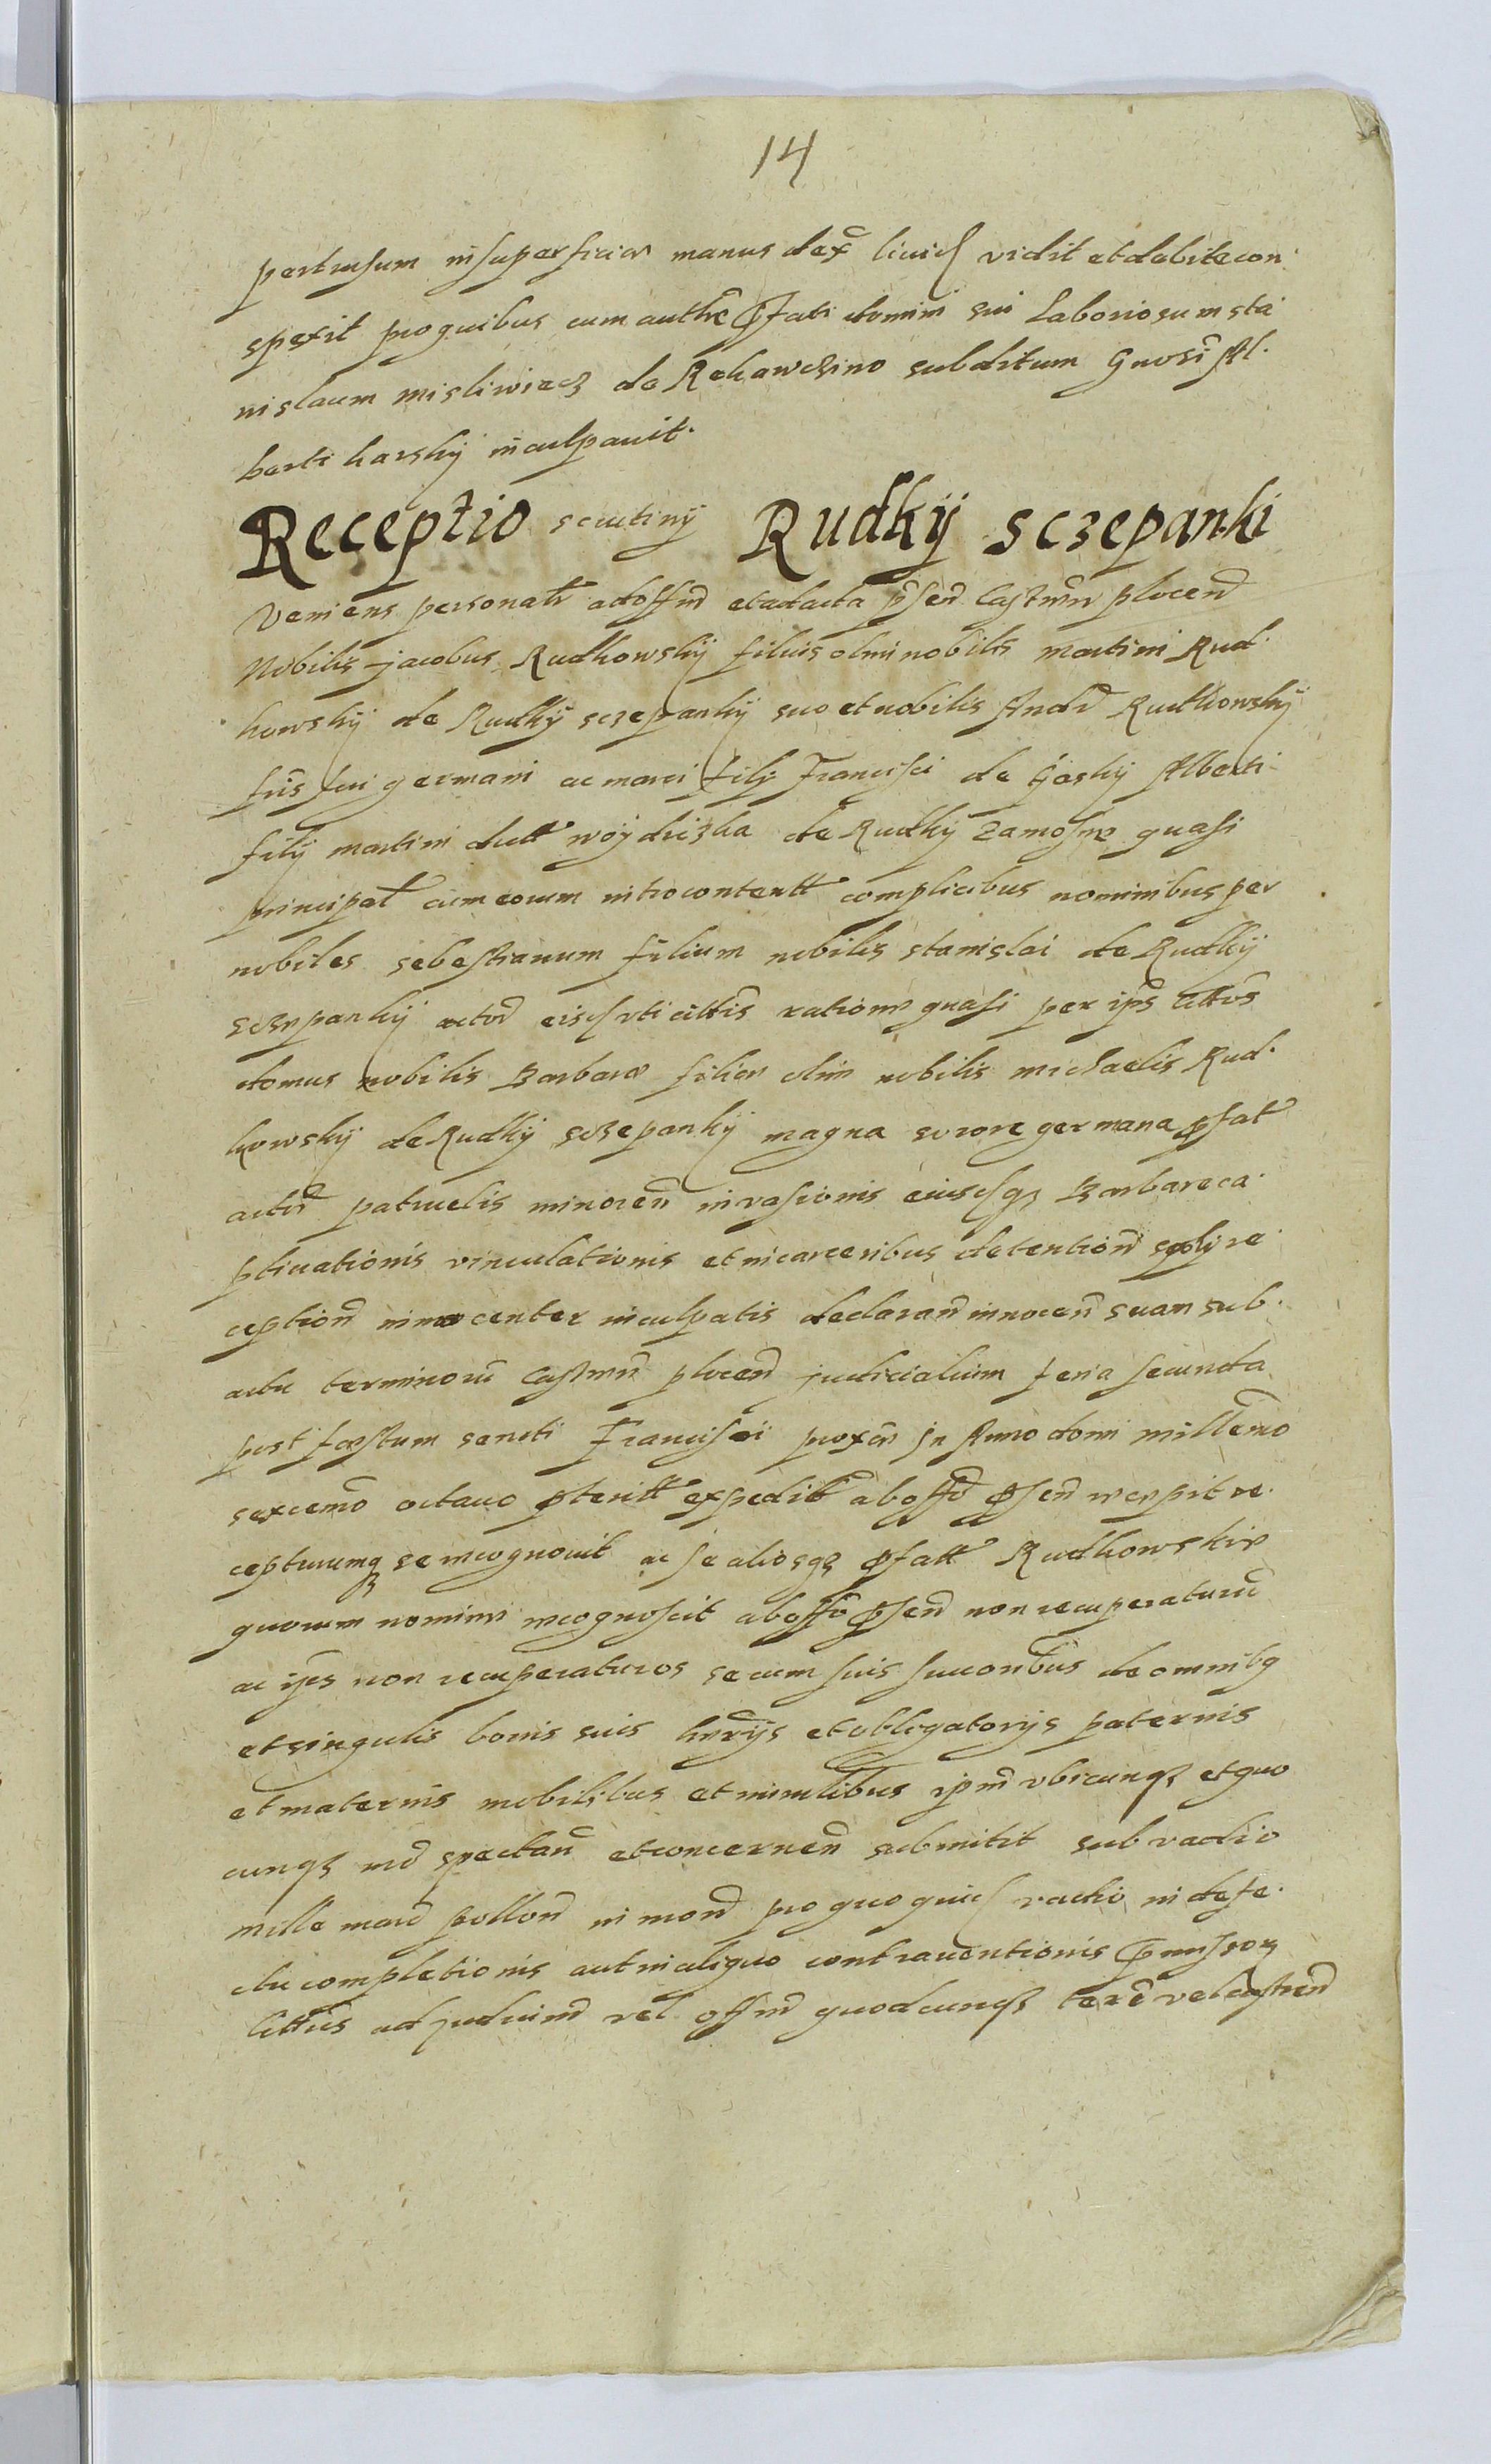 14
pertusum in superficie manus dex liuid vidit et debite con
spexit pro quibus cum authe pfati domini sui Laboriosum sta
nislaum misliwiecz de Rekawczino subditum Gnosi Al.
berti karskÿ inculpauit.
Receptio scrutinÿ Rudkÿ sczepanki
Veniens personalr ad offm et ad acta pnsen Castren plocen
Nobilis jacobus Rudkowskÿ filius olim nobilis martini Rud
kowskÿ de Rudkÿ sczepankÿ suo et nobilis Andr Rudkowskÿ
fris sui germani ac marci filÿ Francisci de Alberti
filÿ martini dictt woÿdiszka de Rudkÿ Zamosne quasi
principal cum eorum introcontentt complicibus nominibus per
nobiles sebestianum filium nobilis stanislai de Rudkÿ
sczepankÿ actor ratione quasi per ips
domus nobilis Barbare filie olim nobilis michaelis Rud.
kowskÿ de Rudkÿ sczepankÿ magna sorore germana pfat
actor patruelis minoren invasionis eiusdqz Barbare ca
ptiuationis vinculationis et in carceribus detention spolÿ re
ception innocenter inculpatis declaran innocen suam sub.
actu terminoru Castren plocen judicialium feria secunda
post festum sancti Francisci prox in Anno domi millemo
sexcemo octauo pteritt expedit ab offo psen recepit re.
cepturumq se recognouit ac se aliosqz pfatt Rudkowskie
quorum nomine recognoscit ab offo psen non recuperaturu
ac ipos non recuperaturos se cum suis succoribus de omnibq
et singulis bonis suis herÿs et obligatorÿs paternis
et maternis mobilibus et immlibus ipm vbicunqz et quo
cunqz md spectan et concernen submitit sub vadio
mille marc pollon in mon pro quo quid vadio in defe.
ctu completionis aut in aliquo contrauentionis
ad judicium vel offm quodcunqz terr vel castren